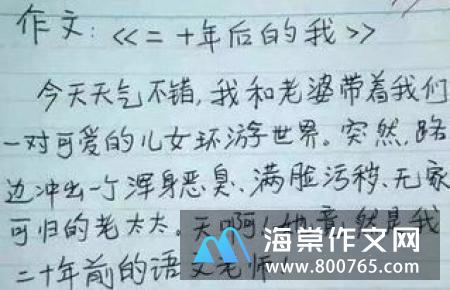 作文:《二十年后的我》
今天天气不错,我和老婆带着我们
一对可爱的儿女环游世界。突然,路
边冲出一个浑身恶臭、满脸污秽、无家
可归的老太太。天啊!她竟然是我
二十年前的语文老师!
海棠作文网
www.800765.com